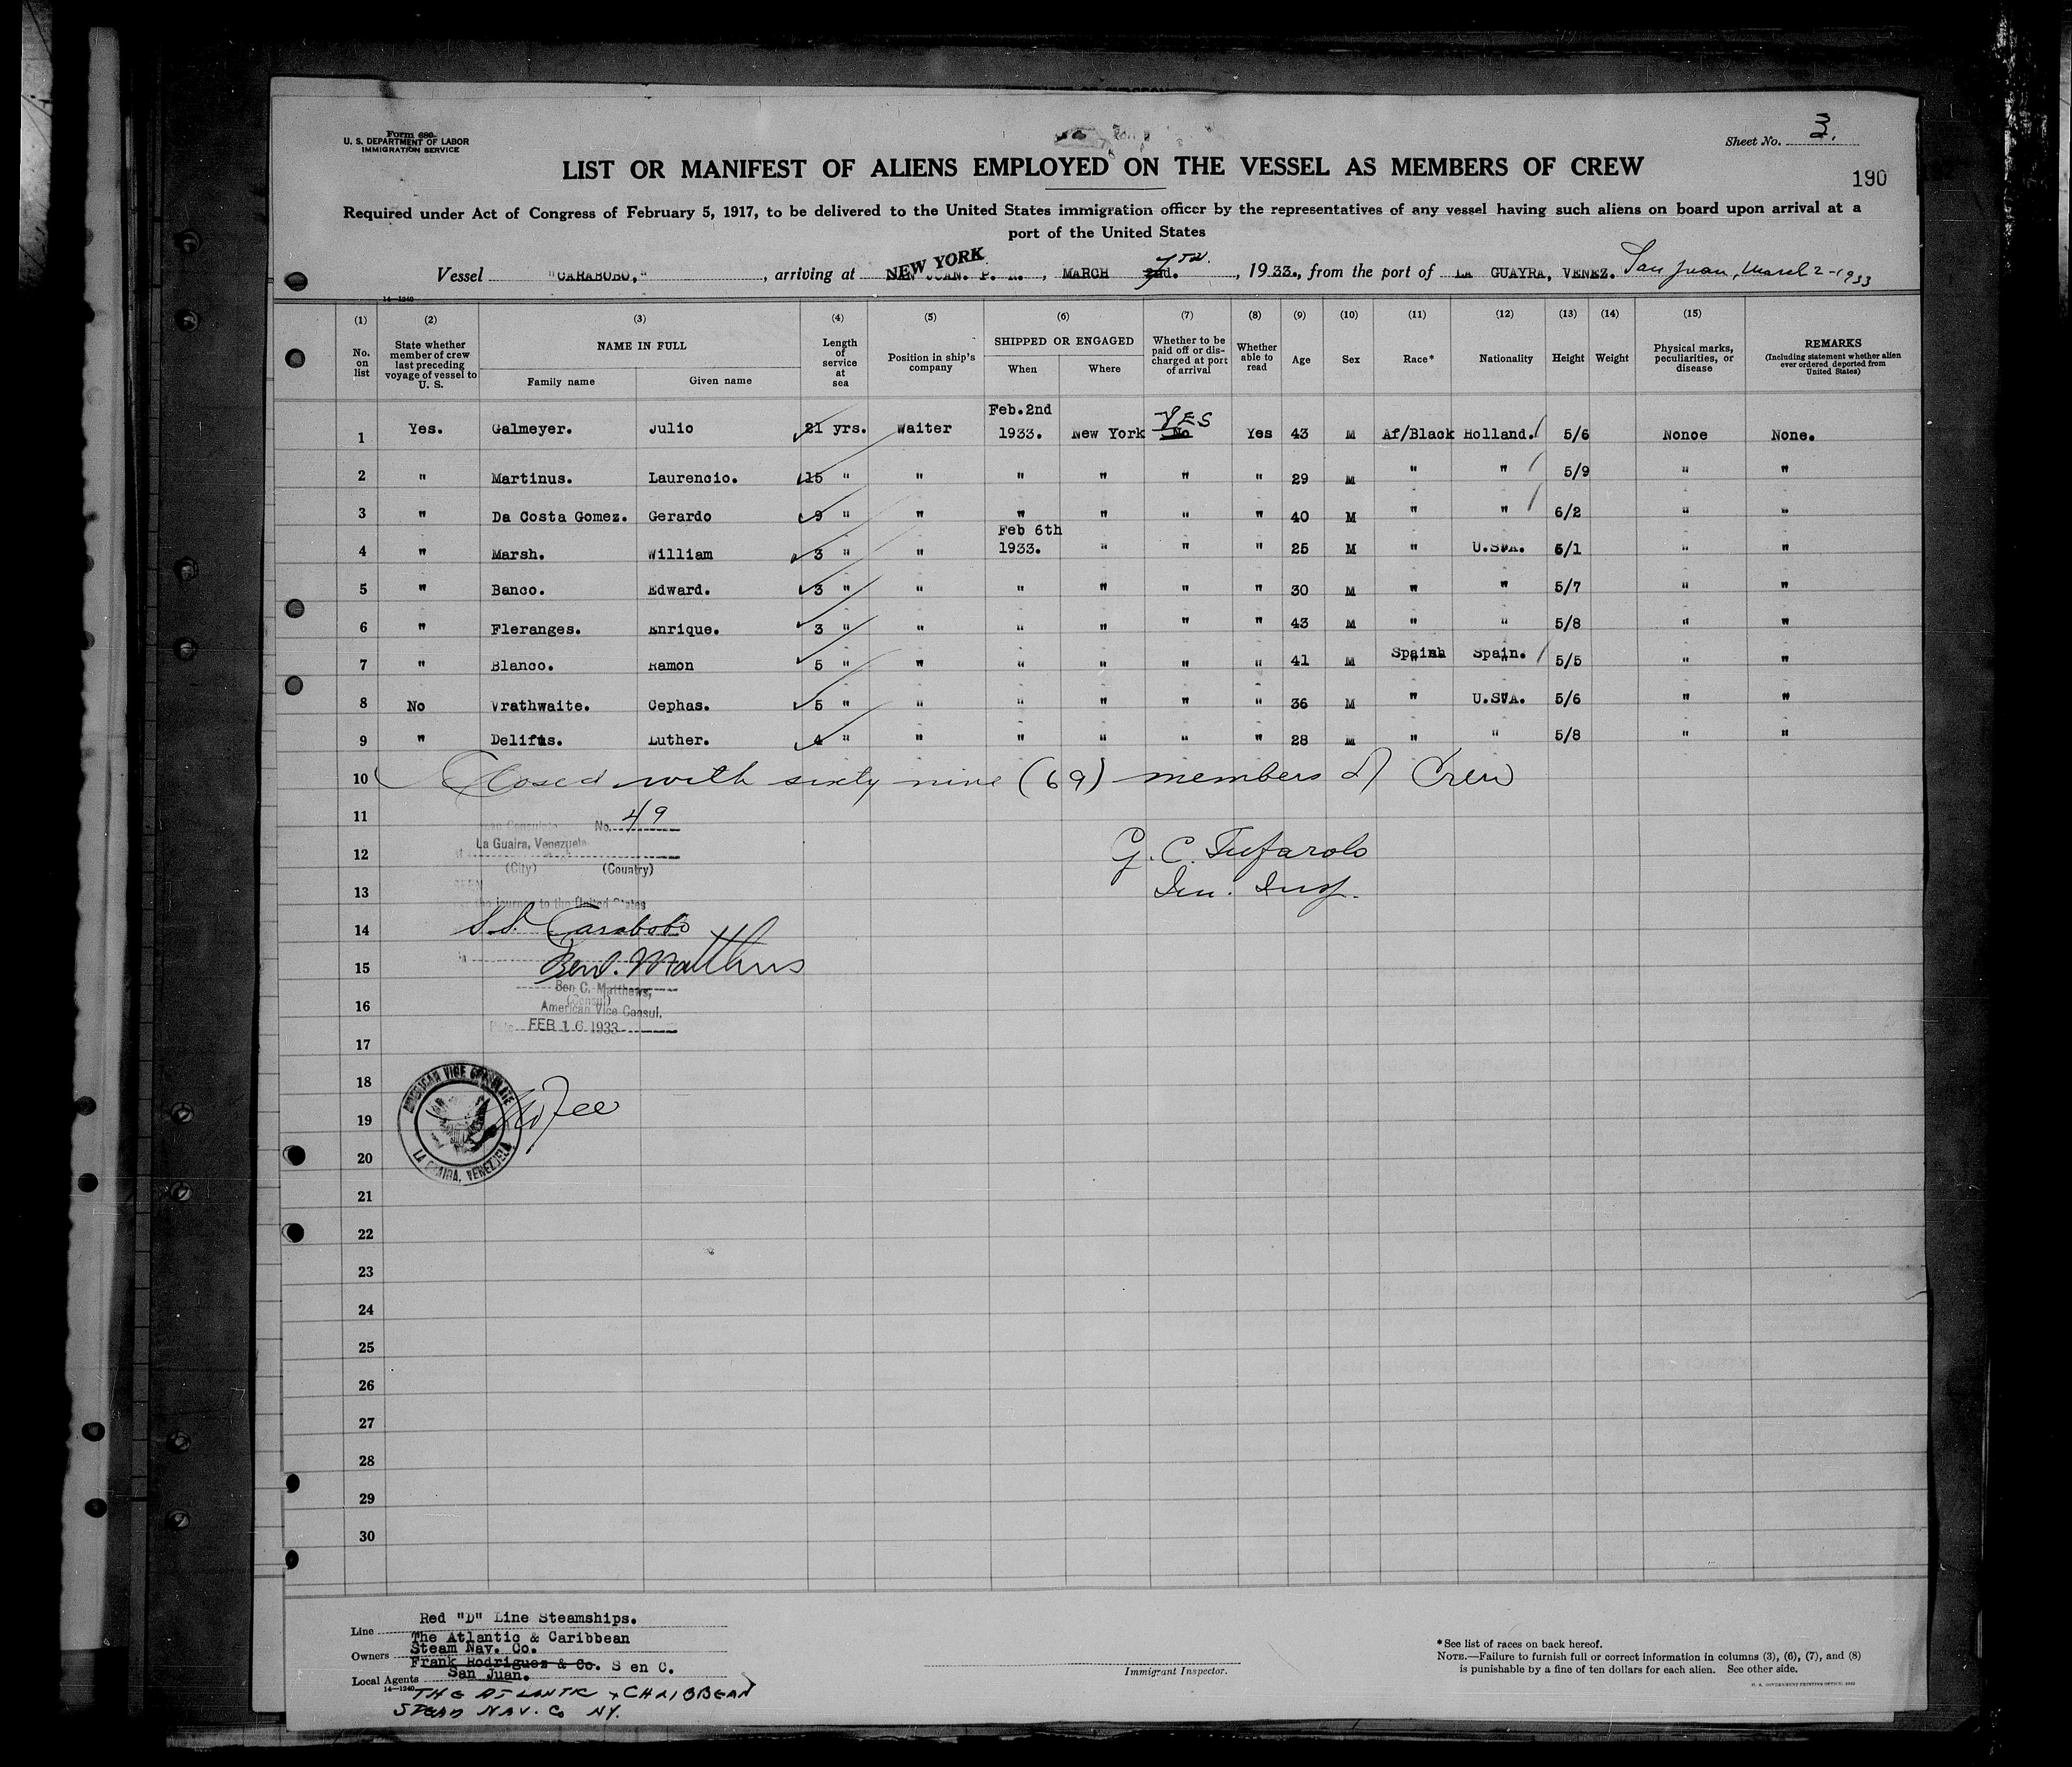 Form 680
U. S. DEPARTMENT OF LABOR
IMMIGRATION SERVICE
Sheet No. 3.
LIST OR MANIFEST OF ALIENS EMPLOYED ON THE VESSEL AS MEMBERS OF CREW
190
Required under Act of Congress of February 5, 1917, to be delivered to the United States immigration officer by the representatives of any vessel having such aliens on board upon arrival at a
port of the United States
Vessel "CARABOBO," , arriving at NEW YORK JUAN. P. R. , MARCH 2nd. 7TH. , 1933., from the port of LA GUAYRA, VENEZ. San Juan, March 2-1933
14-1240
(1) (2) (3) (4) (5) (6) (7) (8) (9) (10) (11) (12) (13) (14) (15)
No. on list State whether member of crew last preceding voyage of vessel to U. S. NAME IN FULL Family name Given name Length of service at sea Position in ship's company SHIPPED OR ENGAGED When Where Whether to be paid off or discharged at port of arrival Whether able to read Age Sex Race* Nationality Height Weight Physical marks, peculiarities, or disease REMARKS (Including statement whether alien ever ordered deported from United States)
1 Yes. Galmeyer. Julio 21 yrs. Waiter Feb.2nd 1933. New York No YES Yes 43 M Af/Black Holland. 5/6 Nonoe None.
2 " Martinus. Laurencio. 15 " " " " " " 29 M " " 5/9 " "
3 " Da Costa Gomez. Gerardo 9 " " " " " " 40 M " " 6/2 " "
4 " Marsh. William 3 " " Feb 6th 1933. " " " 25 M " U.S.A. 6/1 " "
5 " Banco. Edward. 3 " " " " " " 30 M " " 5/7 " "
6 " Fleranges. Enrique. 3 " " " " " " 43 M " " 5/8 " "
7 " Blanco. Ramon 5 " " " " " " 41 M Spainh Spain. 5/5 " "
8 No Vrathwaite. Cephas. 5 " " " " " " 36 M " U.S.A. 5/6 " "
9 " Delifus. Luther. 4 " " " " " " 28 M " " 5/8 " "
10 Closed with sixty nine (69) members of Crew
11 No. 49
12 La Guaira, Venezuela
(City) (Country)
G. C. Tufarolo
13 SEEN
Imm. Insp.
the journey to the United States
14 S.S. Carabobo
15 Ben C. Matthews
Ben C. Matthews,
(Consul)
16 American Vice Consul.
Date FEB 16 1933
17
18 AMERICAN VICE CONSULATE
19 No Fee
20 LA GUAIRA, VENEZUELA
21
22
23
24
25
26
27
28
29
30
Line Red "D" Line Steamships.
Owners The Atlantic & Caribbean
Steam Nav. Co.
Local Agents Frank Rodriguez & Co. S en C.
San Juan.
14-1240
THE ATLANTIC & CARIBBEAN
STEAM NAV. Co NY.
Immigrant Inspector.
* See list of races on back hereof.
NOTE.—Failure to furnish full or correct information in columns (3), (6), (7), and (8)
is punishable by a fine of ten dollars for each alien. See other side.